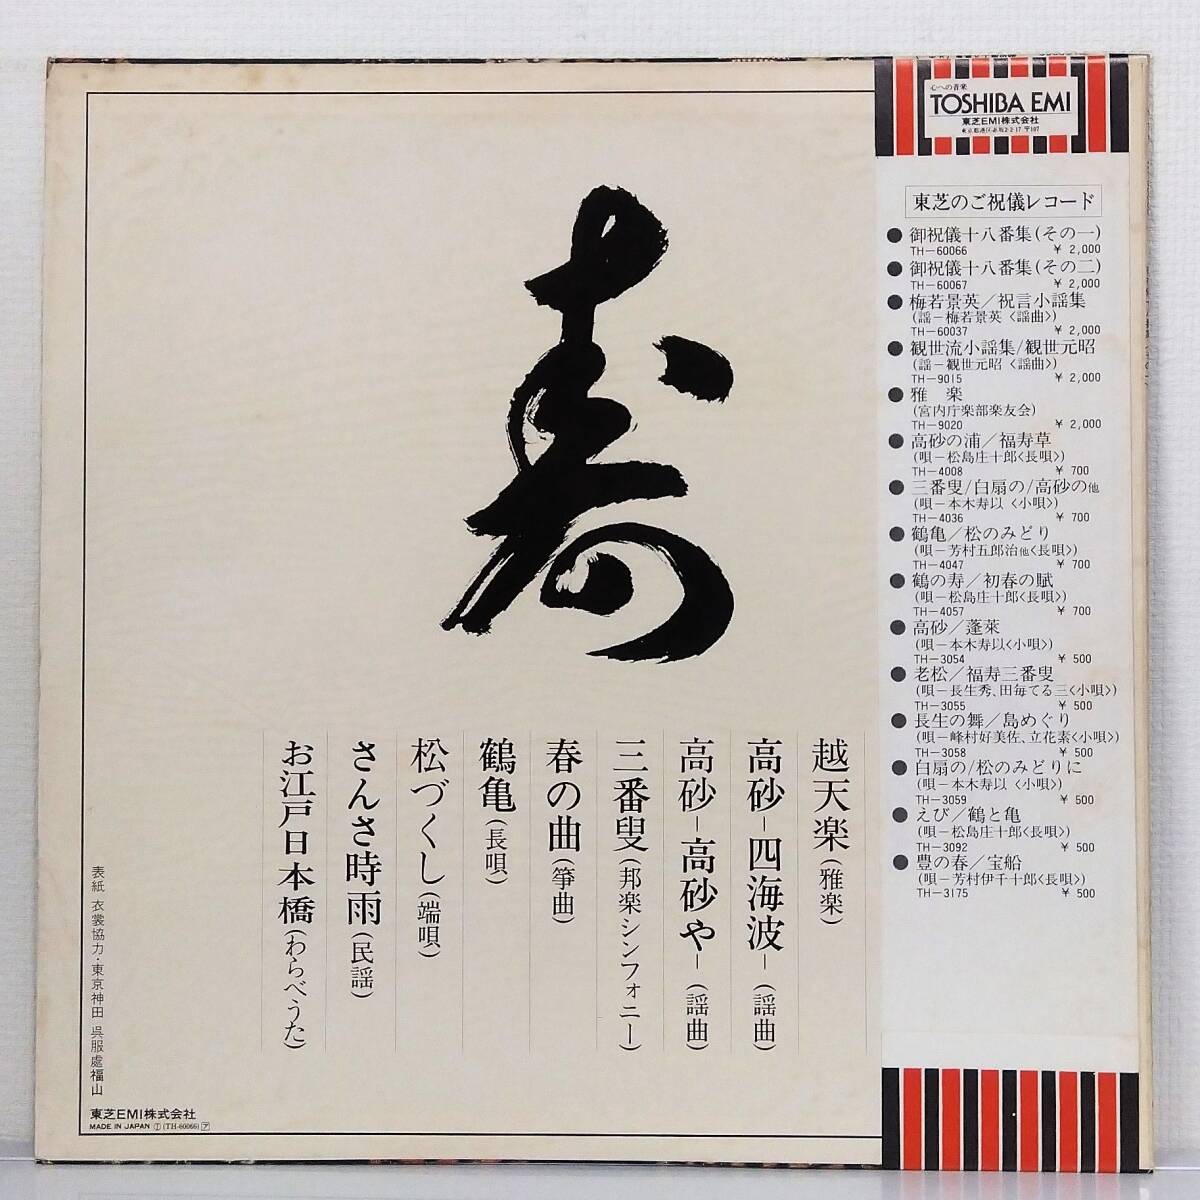 寿
越天楽(雅楽)
高砂-四海波-(謡曲)
高砂-高砂や-(謡曲)
三番叟(邦楽シンフォニー)
春の曲(箏曲)
鶴亀(長唄)
松づくし(端唄)
さんさ時雨(民謡)
お江戸日本橋(わらべうた)
表紙 衣裳協力・東京神田 呉服處福山
東芝EMI株式会社
MADE IN JAPAN Ⓘ (TH-60066) ア
心への音楽
TOSHIBA EMI
東芝EMI株式会社
東京都港区赤坂2-2-17 〒107
東芝のご祝儀レコード
●御祝儀十八番集(その一)
TH-60066 ¥ 2,000
●御祝儀十八番集(その二)
TH-60067 ¥ 2,000
●梅若景英/祝言小謡集
(謡-梅若景英〈謡曲〉)
TH-60037 ¥ 2,000
●観世流小謡集/観世元昭
(謡-観世元昭〈謡曲〉)
TH-9015 ¥ 2,000
●雅 楽
(宮内庁楽部楽友会)
TH-9020 ¥ 2,000
●高砂の浦/福寿草
(唄-松島庄十郎〈長唄〉)
TH-4008 ¥ 700
●三番叟/白扇の/高砂の他
(唄-本木寿以〈小唄〉)
TH-4036 ¥ 700
●鶴亀/松のみどり
(唄-芳村五郎治他〈長唄〉)
TH-4047 ¥ 700
●鶴の寿/初春の賦
(唄-松島庄十郎〈長唄〉)
TH-4057 ¥ 700
●高砂/蓬萊
(唄-本木寿以〈小唄〉)
TH-3054 ¥ 500
●老松/福寿三番叟
(唄-長生秀、田毎てる三〈小唄〉)
TH-3055 ¥ 500
●長生の舞/島めぐり
(唄-峰村好美佐、立花素〈小唄〉)
TH-3058 ¥ 500
●白扇の/松のみどりに
(唄-本木寿以〈小唄〉)
TH-3059 ¥ 500
●えび/鶴と亀
(唄-松島庄十郎〈長唄〉)
TH-3092 ¥ 500
●豊の春/宝船
(唄-芳村伊千十郎〈長唄〉)
TH-3175 ¥ 500